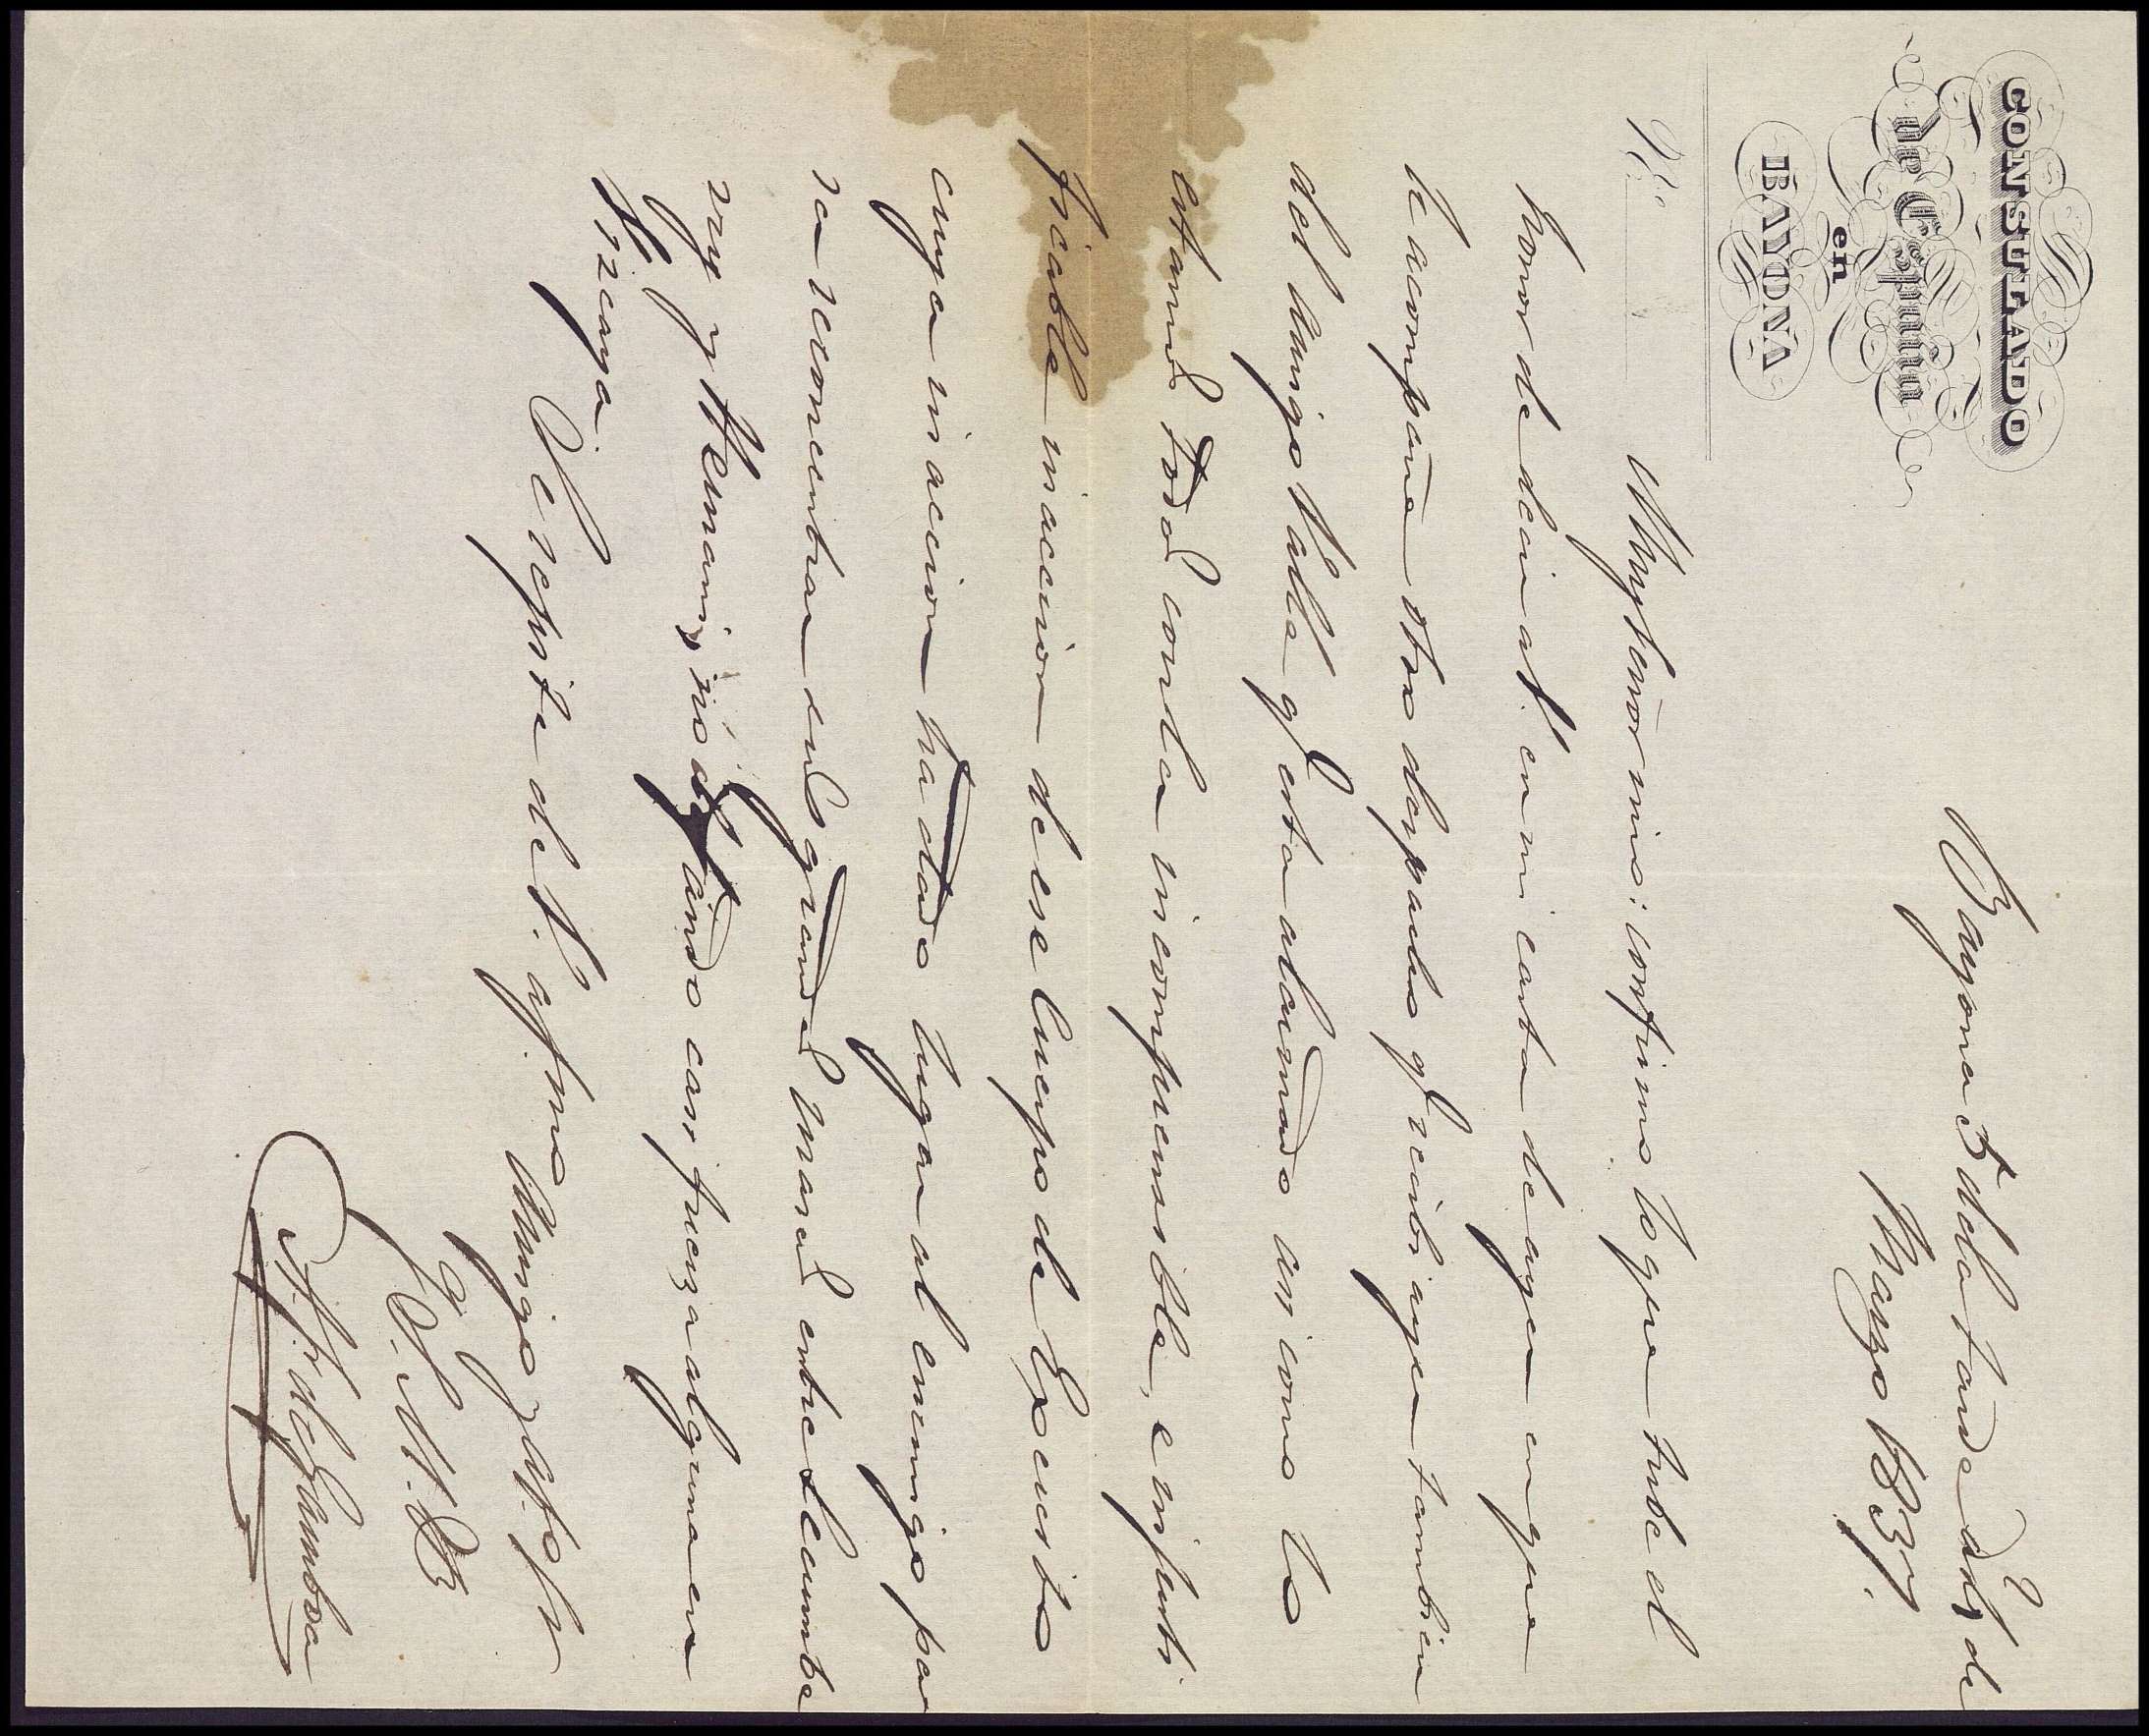 CONSULADO
de España
en
BAYONA
N.º
Bayona 5 dela tarde del 7 de
Marzo 1837.
Muy Señor mio: confirmo lo que tube el
honor de decir a V. en mi carta de ayer en que
le acompañe otro despacho q.e recibi ayer tambien
del Amigo Valle q.e esta alarmado asi como lo
estamos todos con la incomprensible, e injusti
ficable inaccion de ese Cuerpo de Exercito
cuya inaccion ha dado lugar al enemigo pa
ra reconcentrar sus grandes masas entre Lecumbe
rry y Hernani, no dejando casi fuerza alguna en
Vizcaya.
Se repite de V. af.mo Amigo y at.º s.r
Q. S. M. B.
A. F. de Gamboa